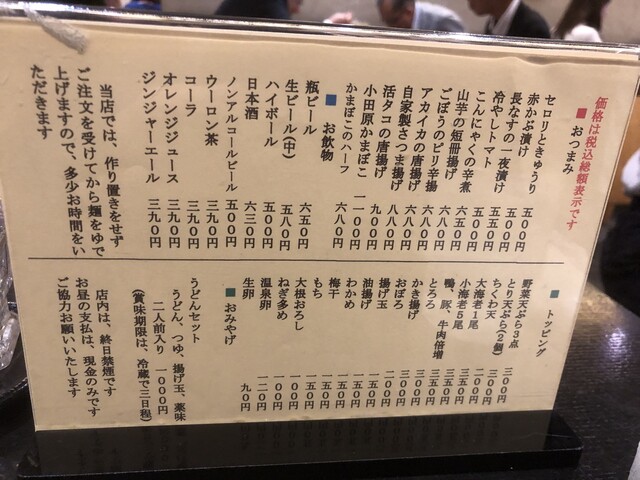 価格は税込総額表示です
■おつまみ
セロリときゅうり 五〇〇円
赤かぶ漬け 五〇〇円
長なすの一夜漬け 五〇〇円
冷やしトマト 五〇〇円
こんにゃくの辛煮 五〇〇円
山芋の短冊揚げ 六五〇円
ごぼうのピリ辛揚げ 六八〇円
アカイカの唐揚げ 六八〇円
自家製さつま揚げ 八八〇円
活タコの唐揚げ
小田原かまぼこ 一一〇〇円
かまぼこのハーフ 六八〇円
■お飲物
瓶ビール 六五〇円
生ビール(中) 五八〇円
ハイボール 五〇〇円
日本酒 六三〇円
ノンアルコールビール 五〇〇円
ウーロン茶 三九〇円
コーラ 三九〇円
オレンジジュース 三九〇円
ジンジャーエール 三九〇円
当店では、作り置きをせず
ご注文を受けてから麺をゆで
上げますので、多少お時間をい
ただきます
■トッピング
野菜天ぷら3点 三〇〇円
とり天ぷら(2個) 三〇〇円
ちくわ天 二〇〇円
大海老1尾 三五〇円
小海老5尾 三五〇円
鴨、豚、牛肉倍増 三五〇円
とろろ 三〇〇円
かき揚げ 三〇〇円
おぼろ
揚げ玉
油揚げ 一五〇円
わかめ 一五〇円
梅干 一五〇円
もち 一五〇円
大根おろし
ねぎ多め 一〇〇円
温泉卵 一二〇円
生卵 九〇円
■おみやげ
うどんセット
うどん、つゆ、揚げ玉、薬味
二人前入り 一〇〇〇円
(賞味期限は、冷蔵で三日程)
店内は、終日禁煙です
お昼の支払は、現金のみです
ご協力お願いいたします